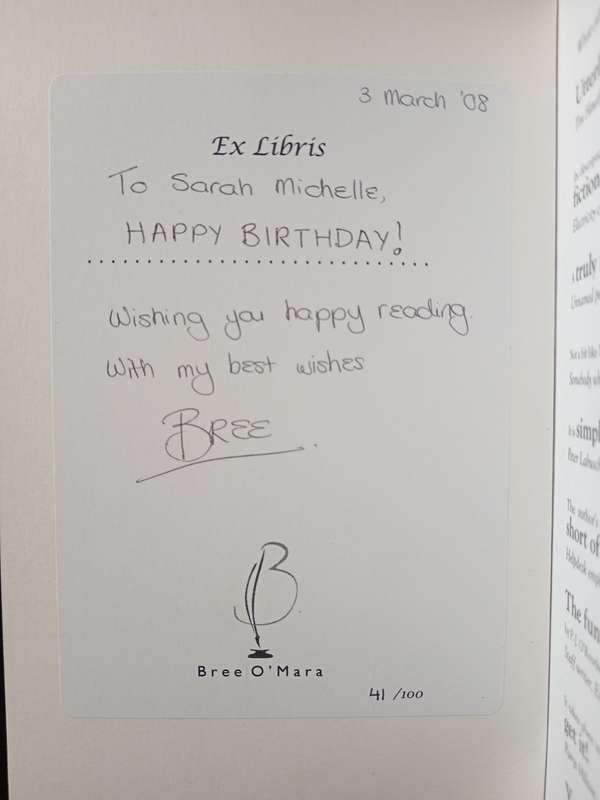 3 March '08
Ex Libris
To Sarah Michelle,
HAPPY BIRTHDAY!
Wishing you happy reading.
With my best wishes
BREE
B
Bree O'Mara
41 /100
fiction
truly
simpl
The author's
short of
The fun
get it!